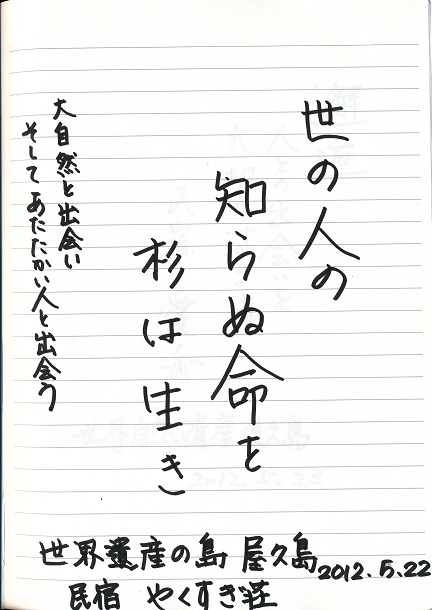 世の人の
知らぬ命を
杉は生き
大自然と出会い
そしてあたたかい人と出会う
世界遺産の島 屋久島 2012.5.22
民宿 やくすぎ荘